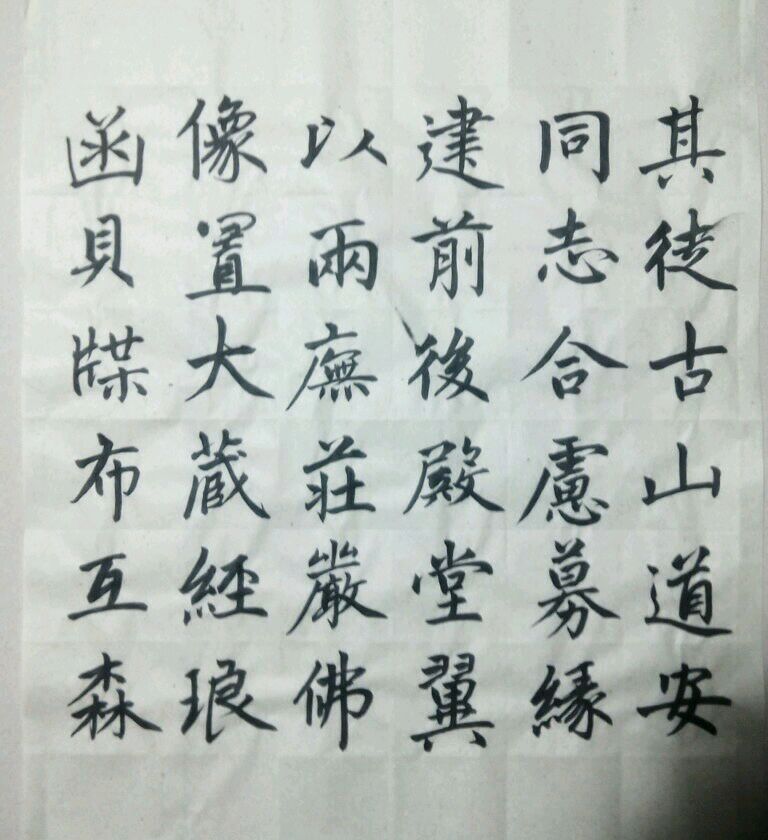 其徒古山道安
同志合慮募緣
建前後殿堂翼
以兩廡莊嚴佛
像置大蔵經琅
函貝牒布互森